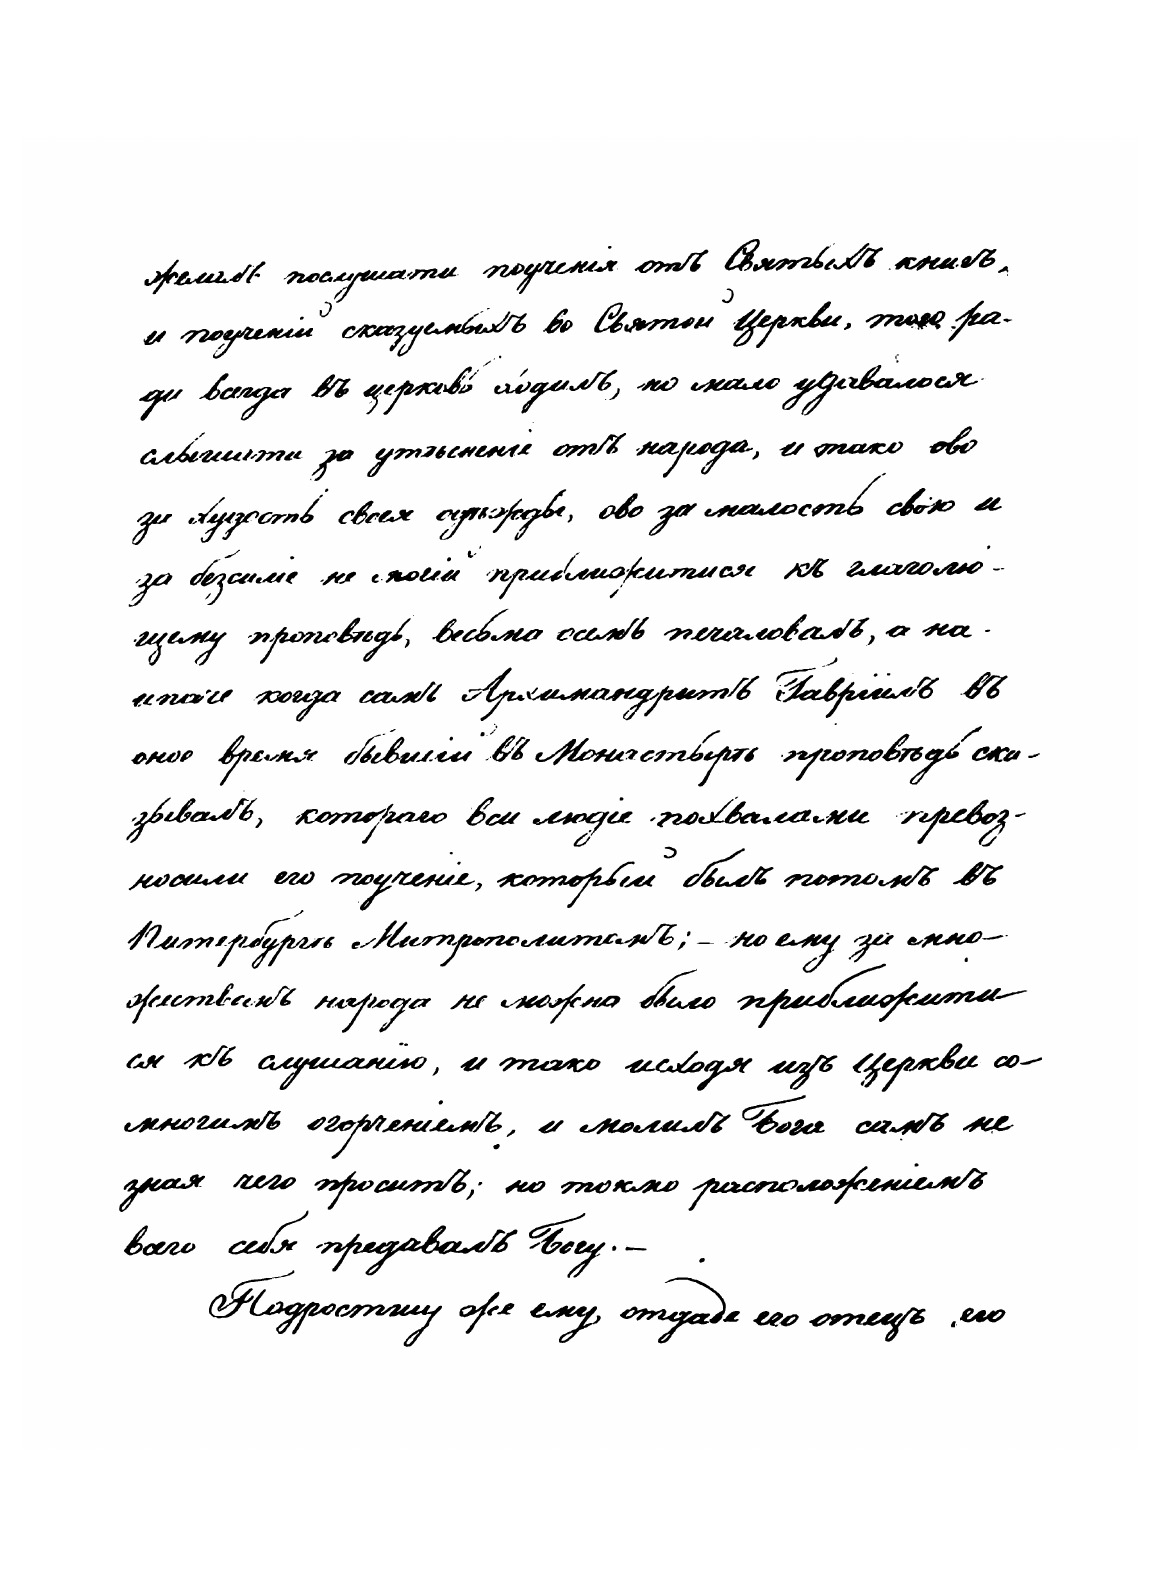 желалъ послушати поученія отъ Святыхъ книгъ,
и поученій сказуемыхъ во Святой Церкви, того ра-
ди всегда въ церковь ходилъ, но мало удавалося
слышати за утѣсненіе отъ народа, и тако ово
за худость своея одежды, ово за малость свою и
за безсиліе не могій приближитися къ глаголю-
щему проповѣдь, весьма о семъ печаловалъ, а на-
ипаче когда самъ Архимандритъ Гавріилъ въ
оное время бывшій въ Монастырѣ проповѣдь ска-
зывалъ, котораго вси людіе похвалами превоз-
носили его поученіе, который былъ потомъ въ
Питербургѣ Митрополитомъ; – но ему за мно-
жествомъ народа не можно было приближити
ся къ слушанію, и тако исходя изъ Церкви со-
многимъ огорченіемъ, и молилъ Бога самъ не
зная чего проситъ; но токмо расположеніемъ
всего себя предавалъ Богу. –
Подростшу же ему, отдаде его отецъ его